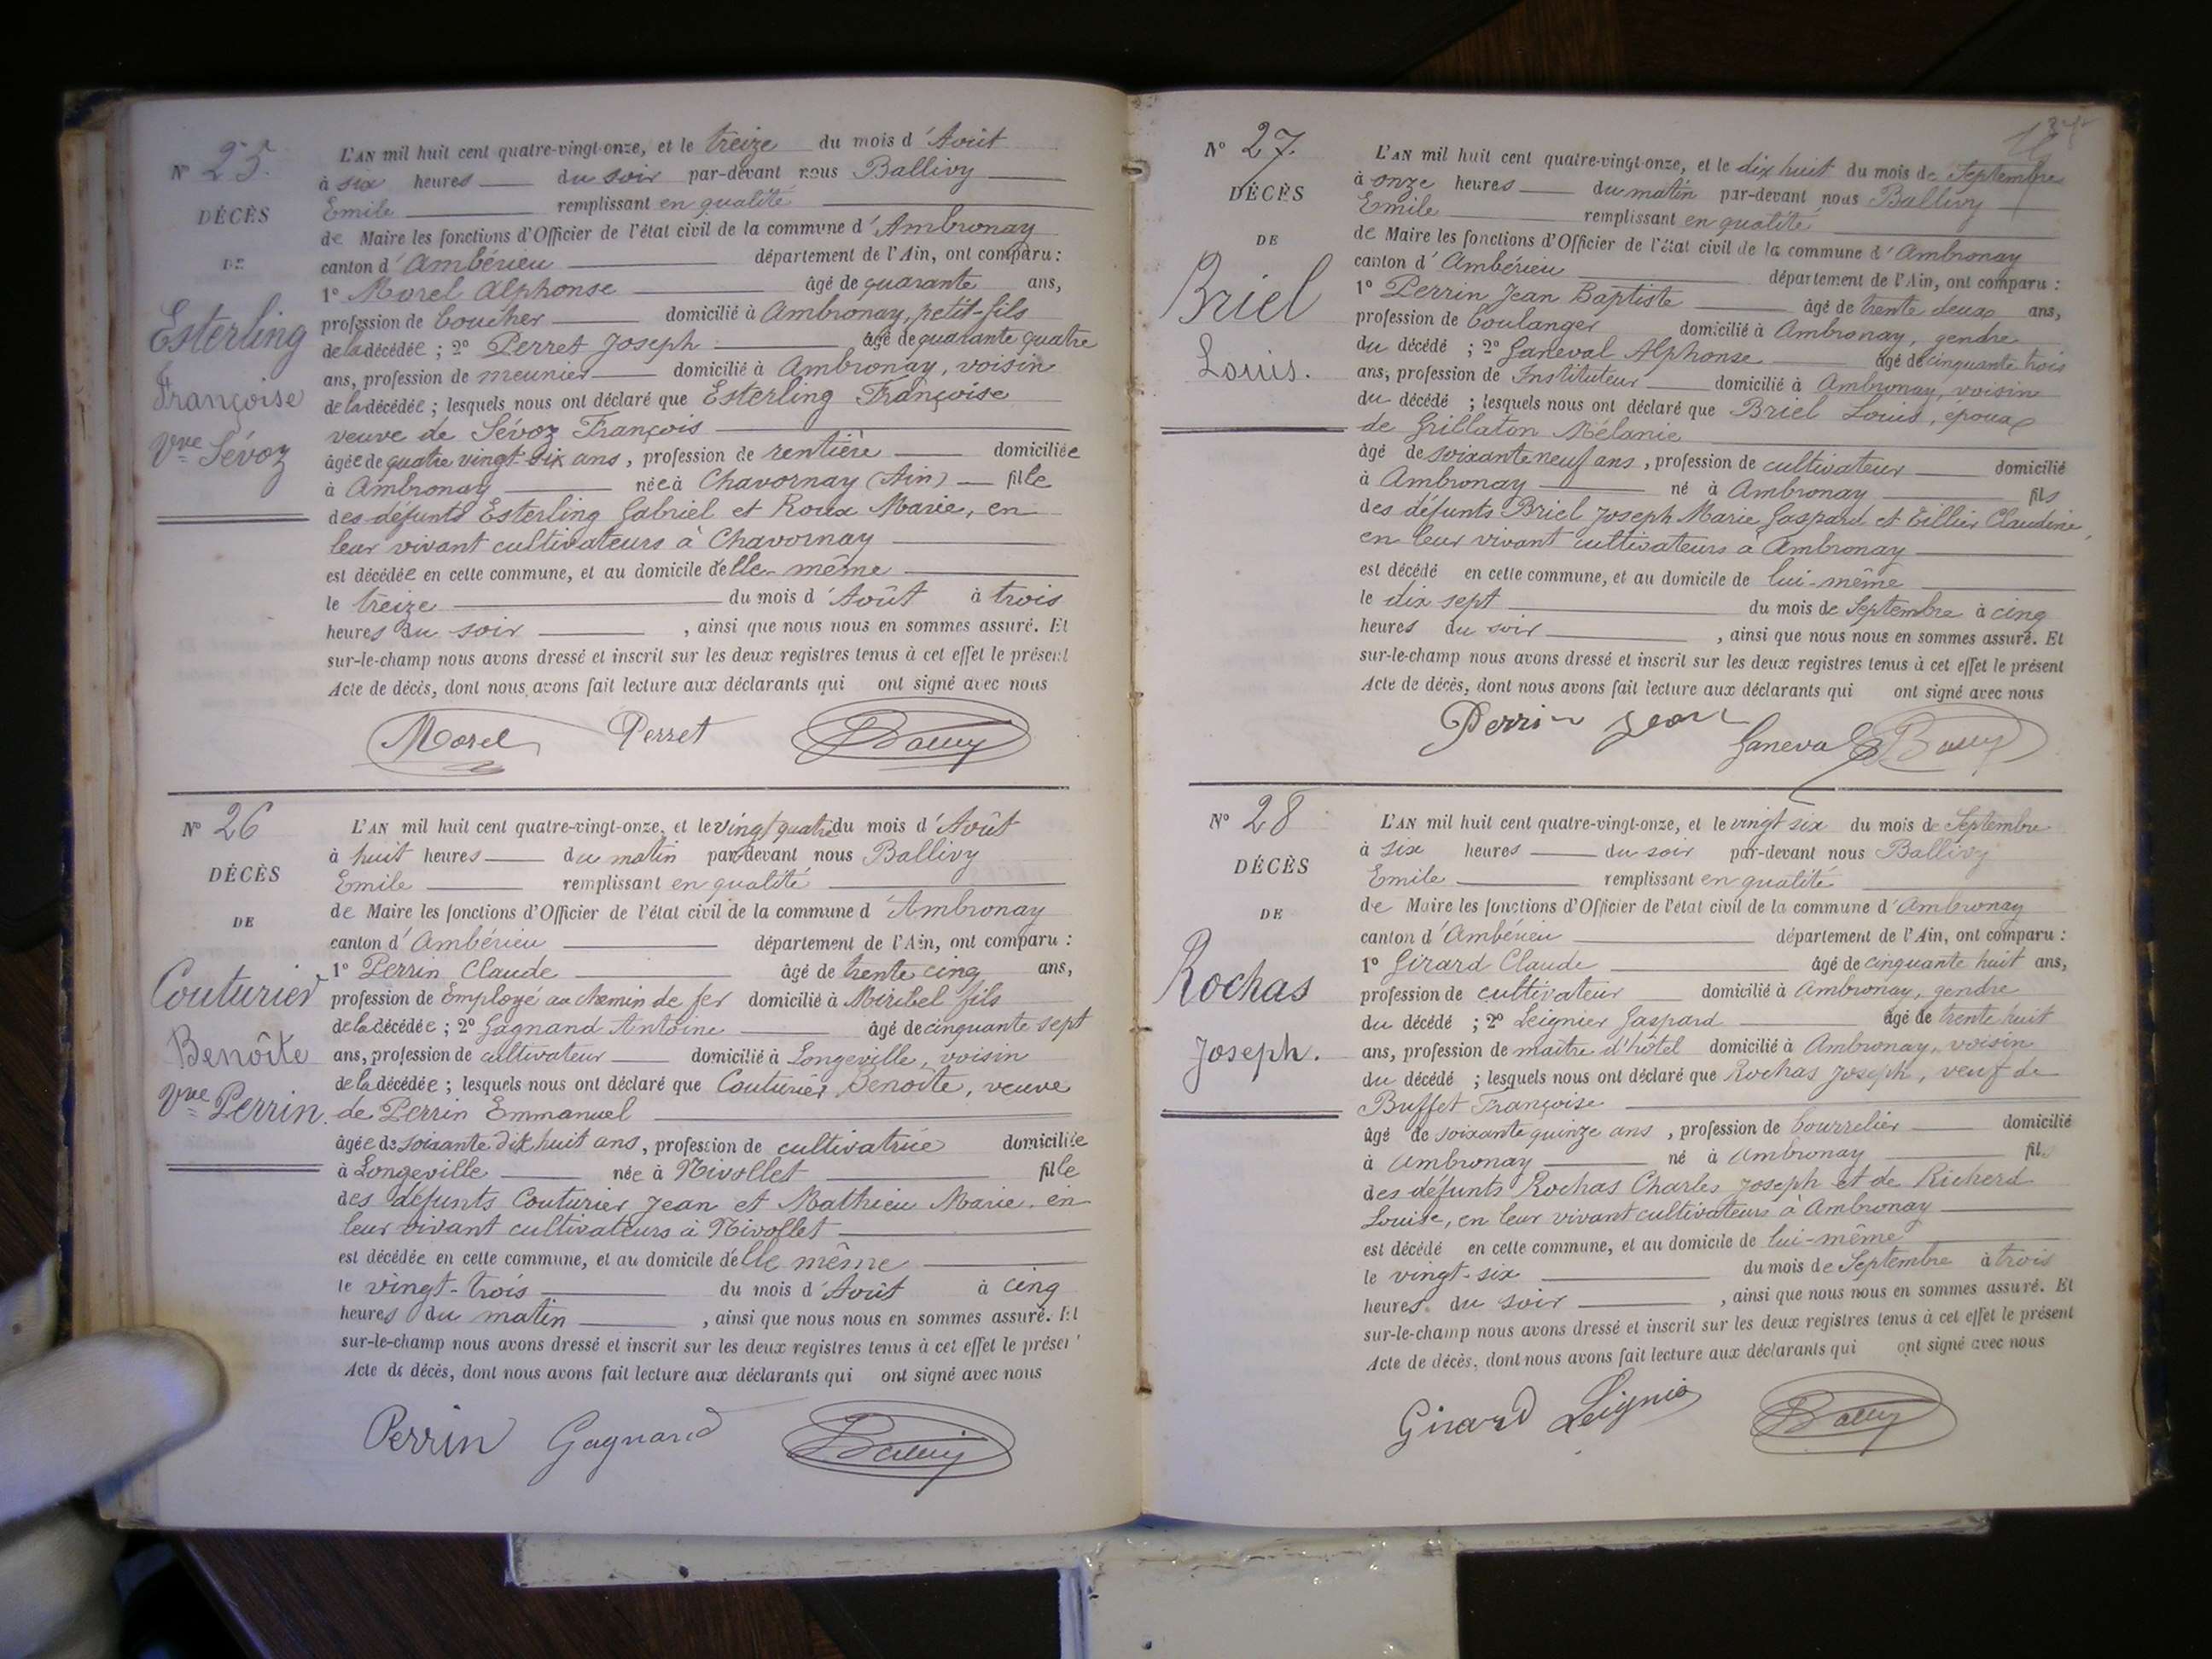 Nº 25.
DÉCÈS
DE
Esterling
Françoise
Vve Sévoz
L'AN mil huit cent quatre-vingt-onze, et le treize du mois d'Août
à six heures du soir par-devant nous Ballivy
Emile remplissant en qualité
de Maire les fonctions d'Officier de l'état civil de la commune d'Ambronay
canton d'Ambérieu département de l'Ain, ont comparu :
1º Morel Alphonse âgé de quarante ans,
profession de boucher domicilié à Ambronay, petit-fils
de la décédée ; 2º Perret Joseph âgé de quarante quatre
ans, profession de meunier domicilié à Ambronay, voisin
de la décédée ; lesquels nous ont déclaré que Esterling Françoise
veuve de Sévoz François
âgée de quatre vingt-six ans, profession de rentière domiciliée
à Ambronay née à Chavornay (Ain) fille
des défunts Esterling Gabriel et Roux Marie, en
leur vivant cultivateurs à Chavornay
est décédée en cette commune, et au domicile d'elle-même
le treize du mois d'Août à trois
heures du soir, ainsi que nous nous en sommes assuré. Et
sur-le-champ nous avons dressé et inscrit sur les deux registres tenus à cet effet le présent
Acte de décès, dont nous avons fait lecture aux déclarants qui ont signé avec nous
Morel Perret Ballivy
Nº 26
DÉCÈS
DE
Couturier
Benoîte
Vve Perrin.
L'AN mil huit cent quatre-vingt-onze, et le vingt quatre du mois d'Août
à huit heures du matin par-devant nous Ballivy
Emile remplissant en qualité
de Maire les fonctions d'Officier de l'état civil de la commune d'Ambronay
canton d'Ambérieu département de l'Ain, ont comparu :
1º Perrin Claude âgé de trente cinq ans,
profession de Employé au chemin de fer domicilié à Miribel fils
de la décédée ; 2º Gagnand Antoine âgé de cinquante sept
ans, profession de cultivateur domicilié à Longeville, voisin
de la décédée ; lesquels nous ont déclaré que Couturier Benoîte, veuve
de Perrin Emmanuel
âgée de soixante dix huit ans, profession de cultivatrice domiciliée
à Longeville née à Nivollet fille
des défunts Couturier Jean et Mathieu Marie, en
leur vivant cultivateurs à Nivollet
est décédée en cette commune, et au domicile d'elle même
le vingt-trois du mois d'Août à cinq
heures du matin, ainsi que nous nous en sommes assuré. Et
sur-le-champ nous avons dressé et inscrit sur les deux registres tenus à cet effet le présent
Acte de décès, dont nous avons fait lecture aux déclarants qui ont signé avec nous
Perrin Gagnand Ballivy
Nº 27.
DÉCÈS
DE
Briel
Louis.
L'AN mil huit cent quatre-vingt-onze, et le dix huit du mois de Septembre
à onze heures du matin par-devant nous Ballivy
Emile remplissant en qualité
de Maire les fonctions d'Officier de l'état civil de la commune d'Ambronay
canton d'Ambérieu département de l'Ain, ont comparu :
1º Perrin Jean Baptiste âgé de trente deux ans,
profession de boulanger domicilié à Ambronay, gendre
du décédé ; 2º Ganeval Alphonse âgé de cinquante trois
ans, profession de Instituteur domicilié à Ambronay, voisin
du décédé ; lesquels nous ont déclaré que Briel Louis, époux
de Grillaton Mélanie
âgé de soixante neuf ans, profession de cultivateur domicilié
à Ambronay né à Ambronay fils
des défunts Briel Joseph Marie Gaspard et Tillier Claudine,
en leur vivant cultivateurs à Ambronay
est décédé en cette commune, et au domicile de lui-même
le dix sept du mois de Septembre à cinq
heures du soir, ainsi que nous nous en sommes assuré. Et
sur-le-champ nous avons dressé et inscrit sur les deux registres tenus à cet effet le présent
Acte de décès, dont nous avons fait lecture aux déclarants qui ont signé avec nous
Perrin Jean Ganeval Ballivy
Nº 28
DÉCÈS
DE
Rochas
Joseph.
L'AN mil huit cent quatre-vingt-onze, et le vingt six du mois de Septembre
à six heures du soir par-devant nous Ballivy
Emile remplissant en qualité
de Maire les fonctions d'Officier de l'état civil de la commune d'Ambronay
canton d'Ambérieu département de l'Ain, ont comparu :
1º Girard Claude âgé de cinquante huit ans,
profession de cultivateur domicilié à Ambronay, gendre
du décédé ; 2º Leignier Gaspard âgé de trente huit
ans, profession de maître d'hôtel domicilié à Ambronay, voisin
du décédé ; lesquels nous ont déclaré que Rochas Joseph, veuf de
Buffet Françoise
âgé de soixante quinze ans, profession de bourrelier domicilié
à Ambronay né à Ambronay fils
des défunts Rochas Charles Joseph et de Richerd
Louise, en leur vivant cultivateurs à Ambronay
est décédé en cette commune, et au domicile de lui-même
le vingt-six du mois de Septembre à trois
heures du soir, ainsi que nous nous en sommes assuré. Et
sur-le-champ nous avons dressé et inscrit sur les deux registres tenus à cet effet le présent
Acte de décès, dont nous avons fait lecture aux déclarants qui ont signé avec nous
Girard Leignier Ballivy